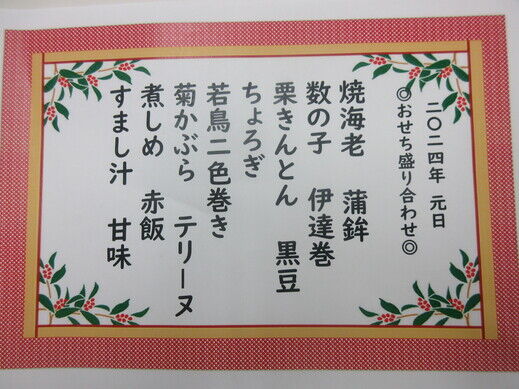 二〇二四年 元日
◎おせち盛り合わせ◎
焼海老 蒲鉾
数の子 伊達巻
栗きんとん 黒豆
ちょろぎ
若鳥二色巻き
菊かぶら テリーヌ
煮しめ 赤飯
すまし汁 甘味